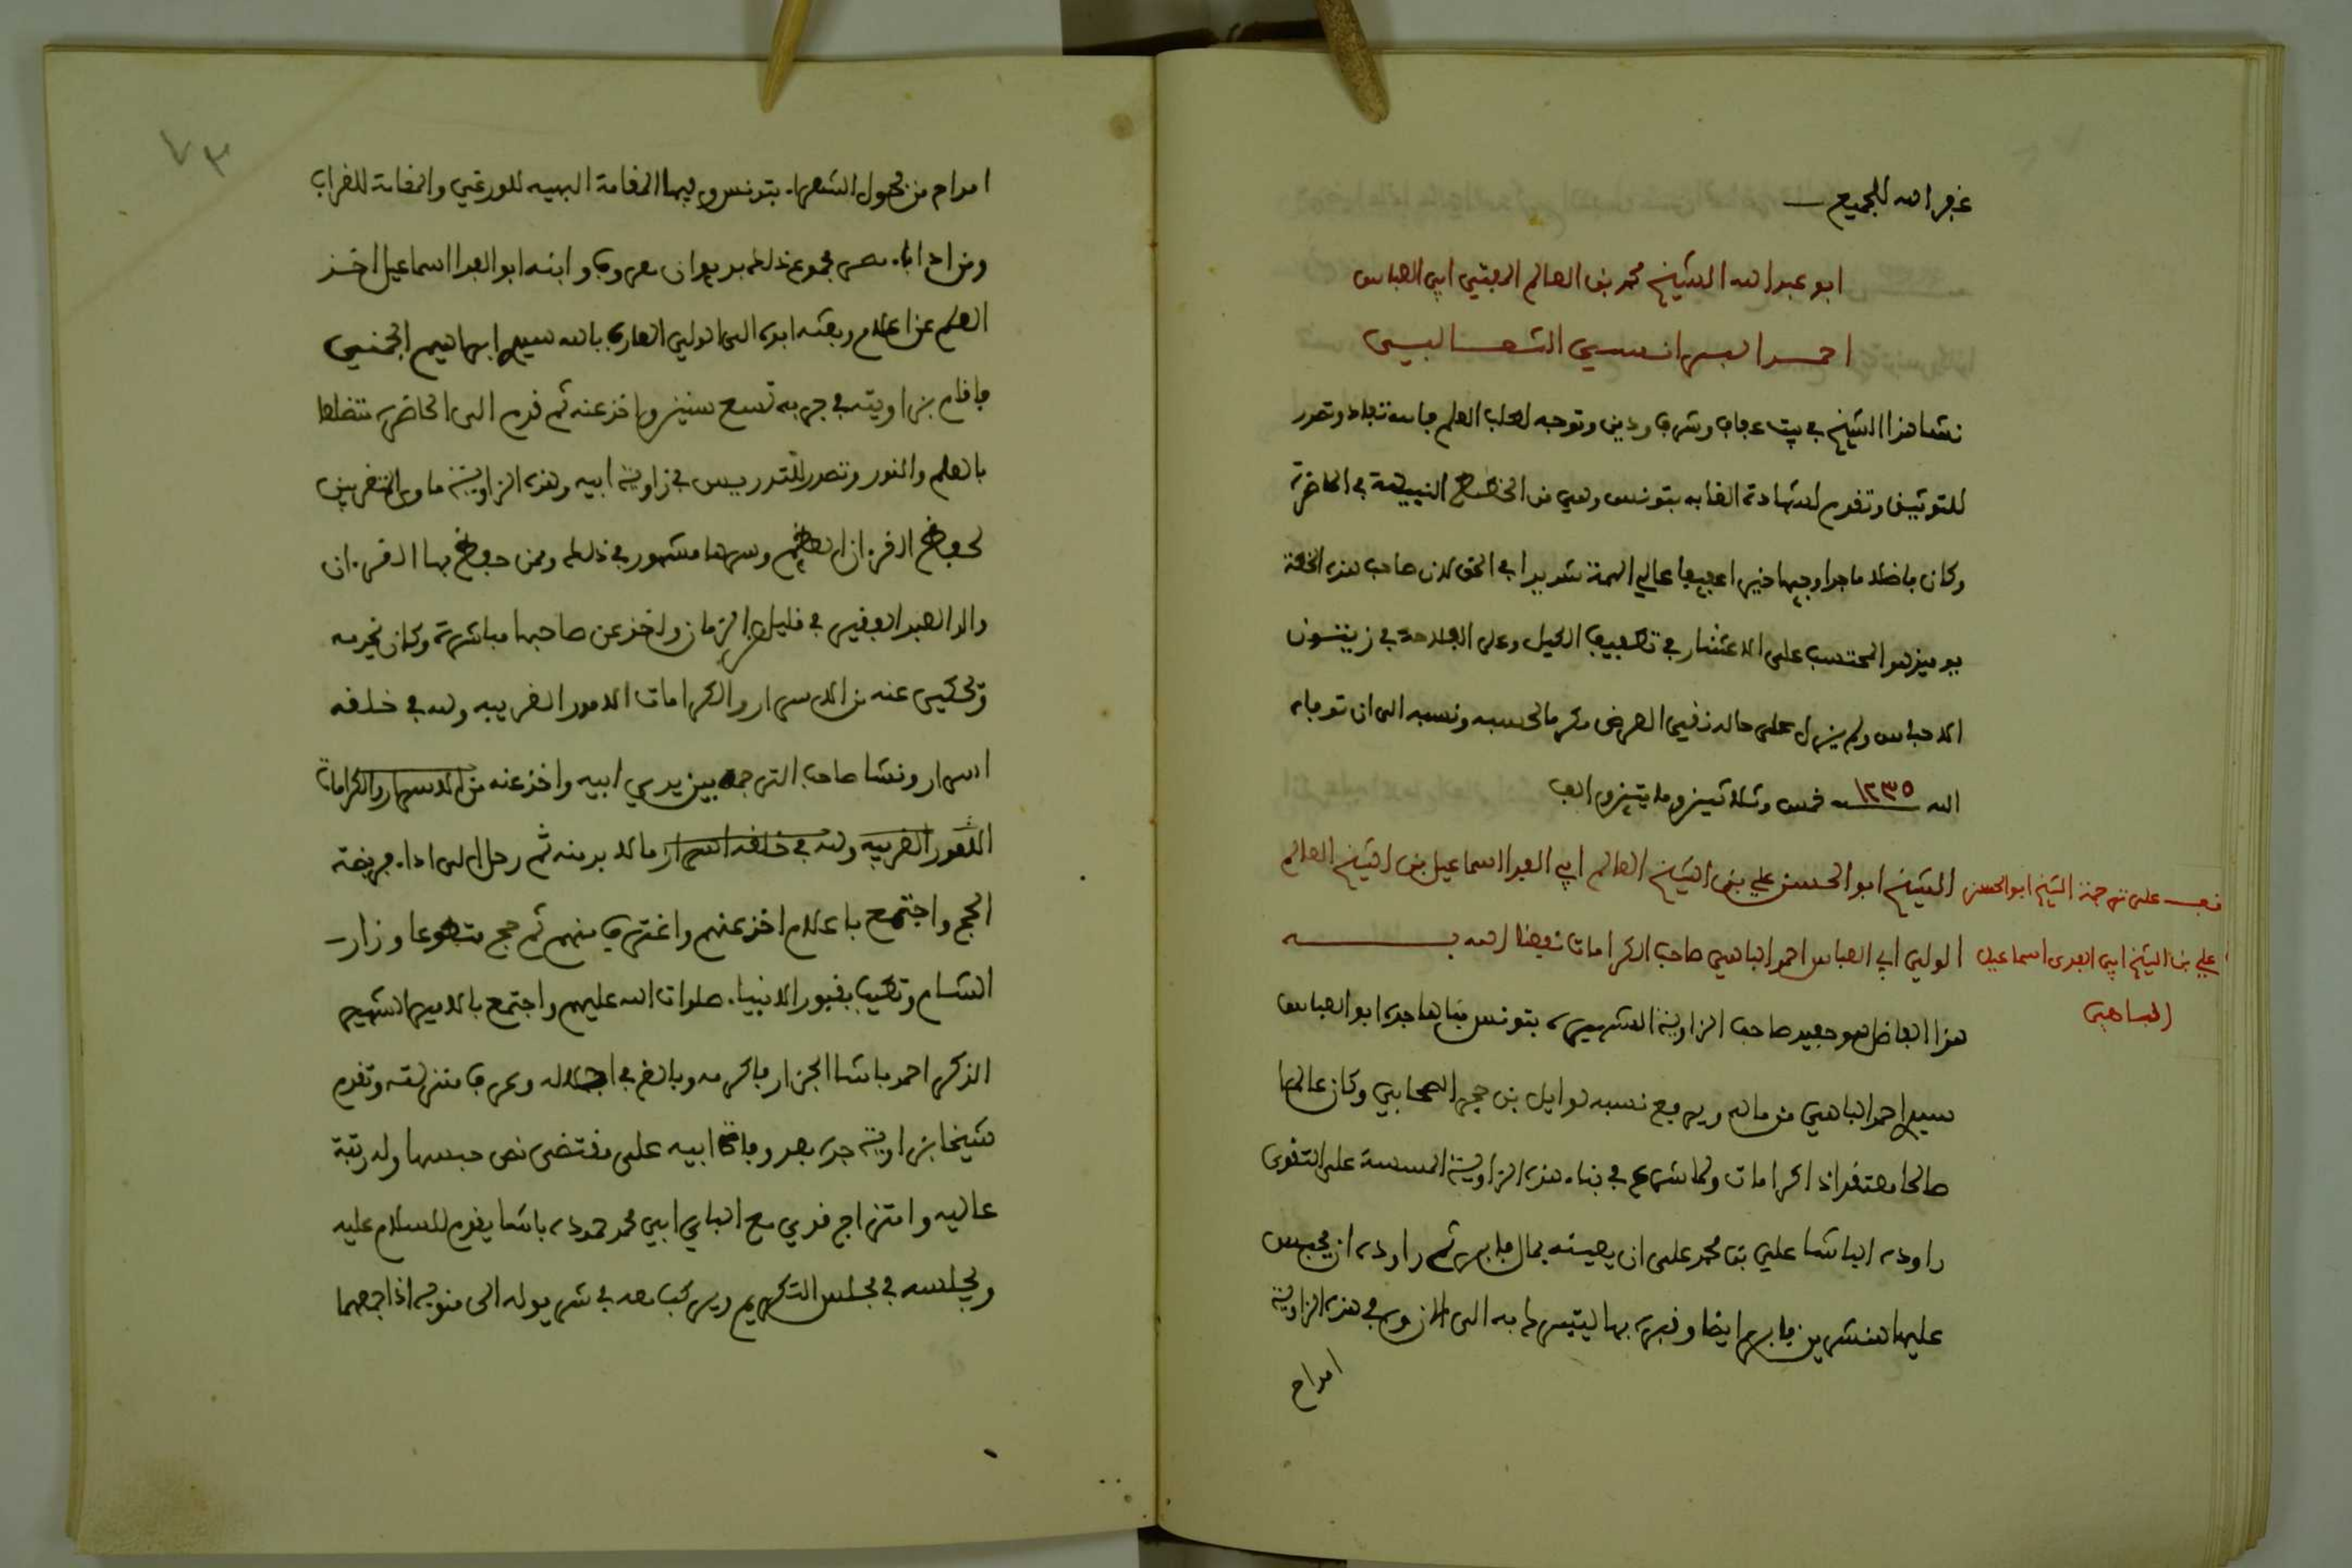 غفر الله للجميع
ابو عبد الله الشيخ محمد بن العالم المفتي ابي العباس
احمد البرانسي الشعالبي
نشا هذا الشيخ في بيت عفاف وشرف ودين وتوجه لطلب العلم وتصدر
للتوثيق وتقدم لشهادة الغابه بتونس وهي من الخطط النبيهة في الحاضرة
وكان فاضلا ماجدا وجيها خيرا عفيفا عالي الهمة شديدا في الحق لان صاحب هذه الخطة
يوميذ هو المحتسب على الاعشار في تطفيف الكيل وعلى الفلاحة في زيتون
الاحباس ولم يزل على حاله نقي العرض مكرما لحسبه ونسبه الى ان توفاه
الله سنة ١٢٣٥ خمس وثلاثين ومايتين والف
الشيخ ابو الحسن علي بن الشيخ العالم ابي الفدا اسماعيل بن الشيخ العالم
الولي ابي العباس احمد الباهي صاحب الكرامات نفعنا الله به
قف على ترجمة الشيخ ابو الحسن
علي بن الشيخ ابي الفدى اسماعيل
الباهي
هذا الفاضل هو حفيد صاحب الزاوية الشهيره بتونس بناها جده ابو العباس
سيدي احمد الباهي من ماله ويرفع نسبه لوايل بن حجر الصحابي وكان عالما
صالحا معتقدا ذا كرامات ولما شرع في بناء هذه الزاوية المسسة على التقوى
راوده الباشا علي بن محمد على ان يعينه بمال فابى ثم راوده ان يحبس
عليها هنشرين فابى ايضا وقبره بها يتبرك به الى الان وفي هذه الزاوية
امداح
٧٣
امداح من فحول الشعراء بتونس وفيها المقامة البهيه للورغي والمقامة للغراب
ومن ادباء عصره مجموع ذلك بديوان معروف وابنه ابو الفدا اسماعيل اخذ
العلم عن اعلام وبعثه ابوه الى الولي العارف بالله سيدي ابراهيم الجمني
فاقام بزاويته في جربه تسع سنين واخذ عنه ثم قدم الى الحاضرة متضلعا
بالعلم والنور وتصدر للتدريس في زاوية ابيه وهذه الزاوية ماوى المتغربين
لحفظ القرءان العظيم وسرها مشهور في ذلك وممن حفظ بها القرءان
والد العبد الفقير في قليل من الزمان واخذ عن صاحبها مباشرة وكان يخدمه
وتحكى عنه من الاسرار والكرامات الامور الغريبه ولله في خلقه
اسرار ونشا صاحب الترجمه بين يدي ابيه واخذ عنه من الاسرار والكرامات
الامور الغريبه ولله في خلقه اسرار ما لا بد منه ثم رحل الى اداء فريضة
الحج واجتمع باعلام اخذ عنهم واغترف منهم ثم حج متطوعا وزار
الشام وتطيب بقبور الانبياء صلوات الله عليهم واجتمع بالامير الشهير
الذكر احمد باشا الجزار فاكرمه وبالغ في اجلاله وعرف منزلته وتقدم
شيخا بزاوية جده بعد وفاة ابيه على مقتضى نص حبسها وله رتبة
عاليه وامتزاج قوي مع الباي ابي محمد حموده باشا يقوم للسلام عليه
ويجلسه في مجلس التكريم ويركب معه في شريوله الى منوبه اذا جمعهما